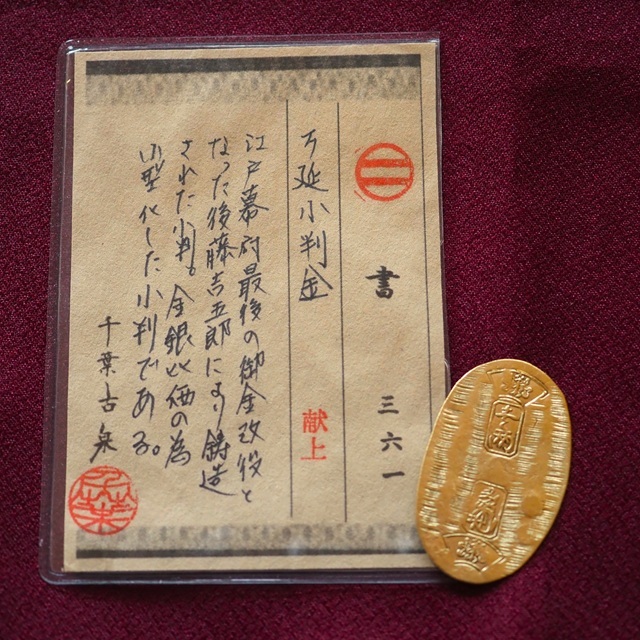 書 三六一
万延小判金 献上
江戸幕府最後の御金改役と
なった後藤吉五郎により鋳造
された小判。金銀比価の為
小型化した小判である。
千葉古泉